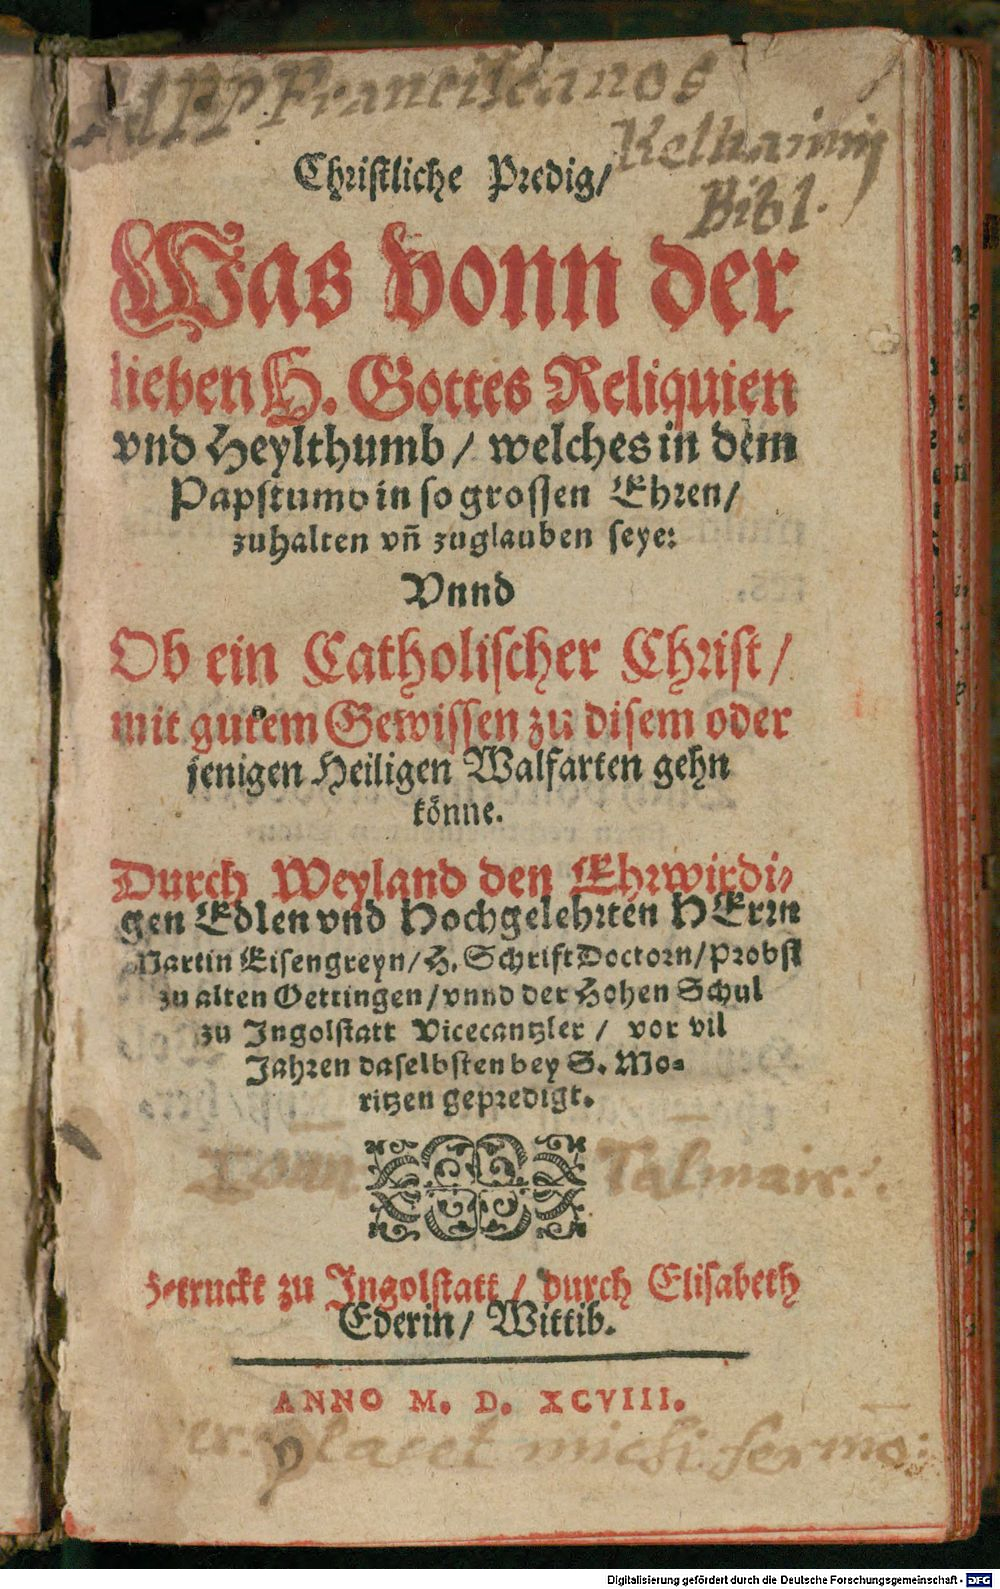 Ad PP Franciscanos
Kelhaimij
Bibl.
Christliche Predig/
Was vonn der
lieben H. Gottes Reliquien
vnd Heylthumb/ welches in dem
Papstumb in so grossen Ehren/
zuhalten vñ zuglauben seye:
Vnnd
Ob ein Catholischer Christ/
mit gutem Gewissen zu disem oder
jenigen Heiligen Walfarten gehn
könne.
Durch Weyland den Ehrwirdi-
gen Edlen vnd Hochgelehrten HErrn
Martin Eisengreyn/ H. Schrifft Doctorn/ Probst
zu alten Oettingen/ vnnd der Hohen Schul
zu Ingolstatt Vicecantzler/ vor vil
Jahren daselbsten bey S. Mo-
ritzen gepredigt.
Talmair.
Getruckt zu Ingolstatt/ durch Elisabeth
Ederin/ Wittib.
ANNO M. D. XCVIII.
placet michi sermo:
Digitalisierung gefördert durch die Deutsche Forschungsgemeinschaft - DFG